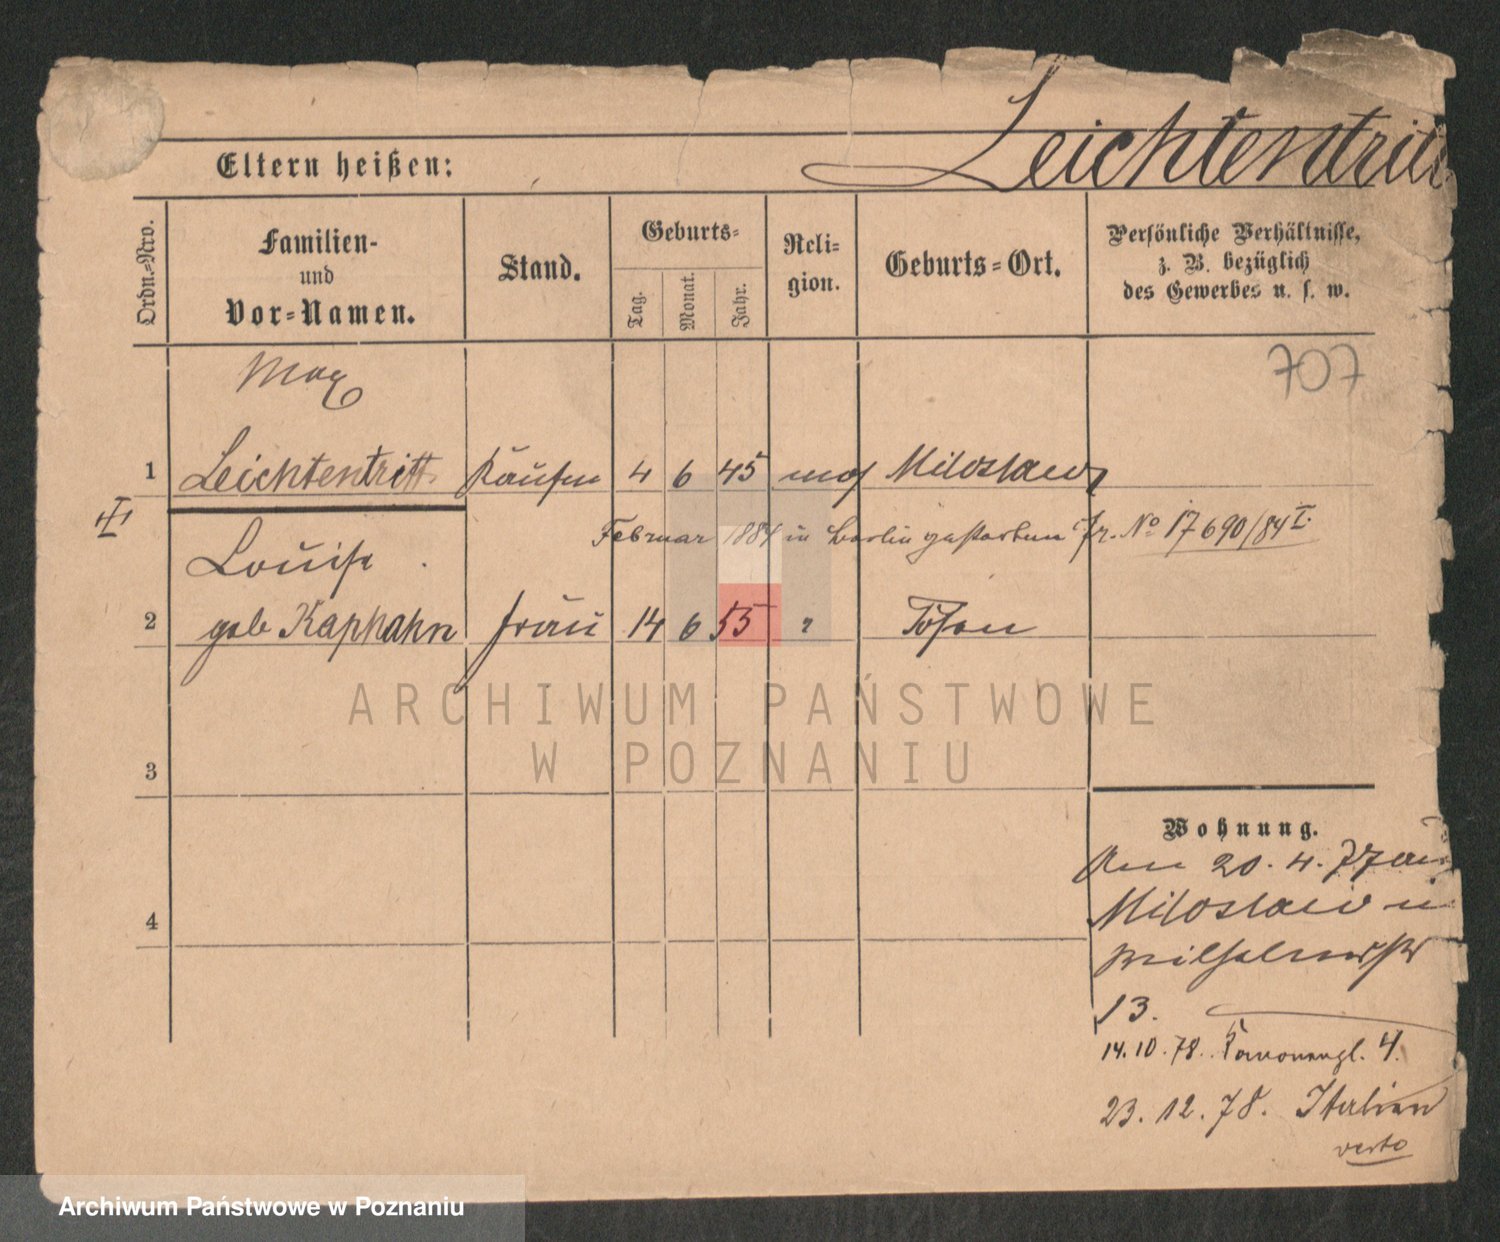 Leichtentritt
Eltern heißen:
Ordn.=Nro.
Familien-
und
Vor=Namen.
Stand.
Geburts=
Tag.
Monat.
Jahr.
Reli=
gion.
Geburts=Ort.
Persönliche Verhältnisse,
z. B. bezüglich
des Gewerbes u. s. w.
707
Max
1 Leichtentritt Kaufm 4 6 45 mos Miloslaw
I
Februar 1884 in Berlin gestorben Jr. No 17690/84 I.
Louise
2 geb Kaphahn Frau 14 6 55 " Posen
3
4
ARCHIWUM PAŃSTWOWE
W POZNANIU
Wohnung.
Am 20. 4. 77 aus
Miloslaw n
Wilhelmsstr
13.
14. 10. 78. 4.
23. 12. 78.
verte
Archiwum Państwowe w Poznaniu